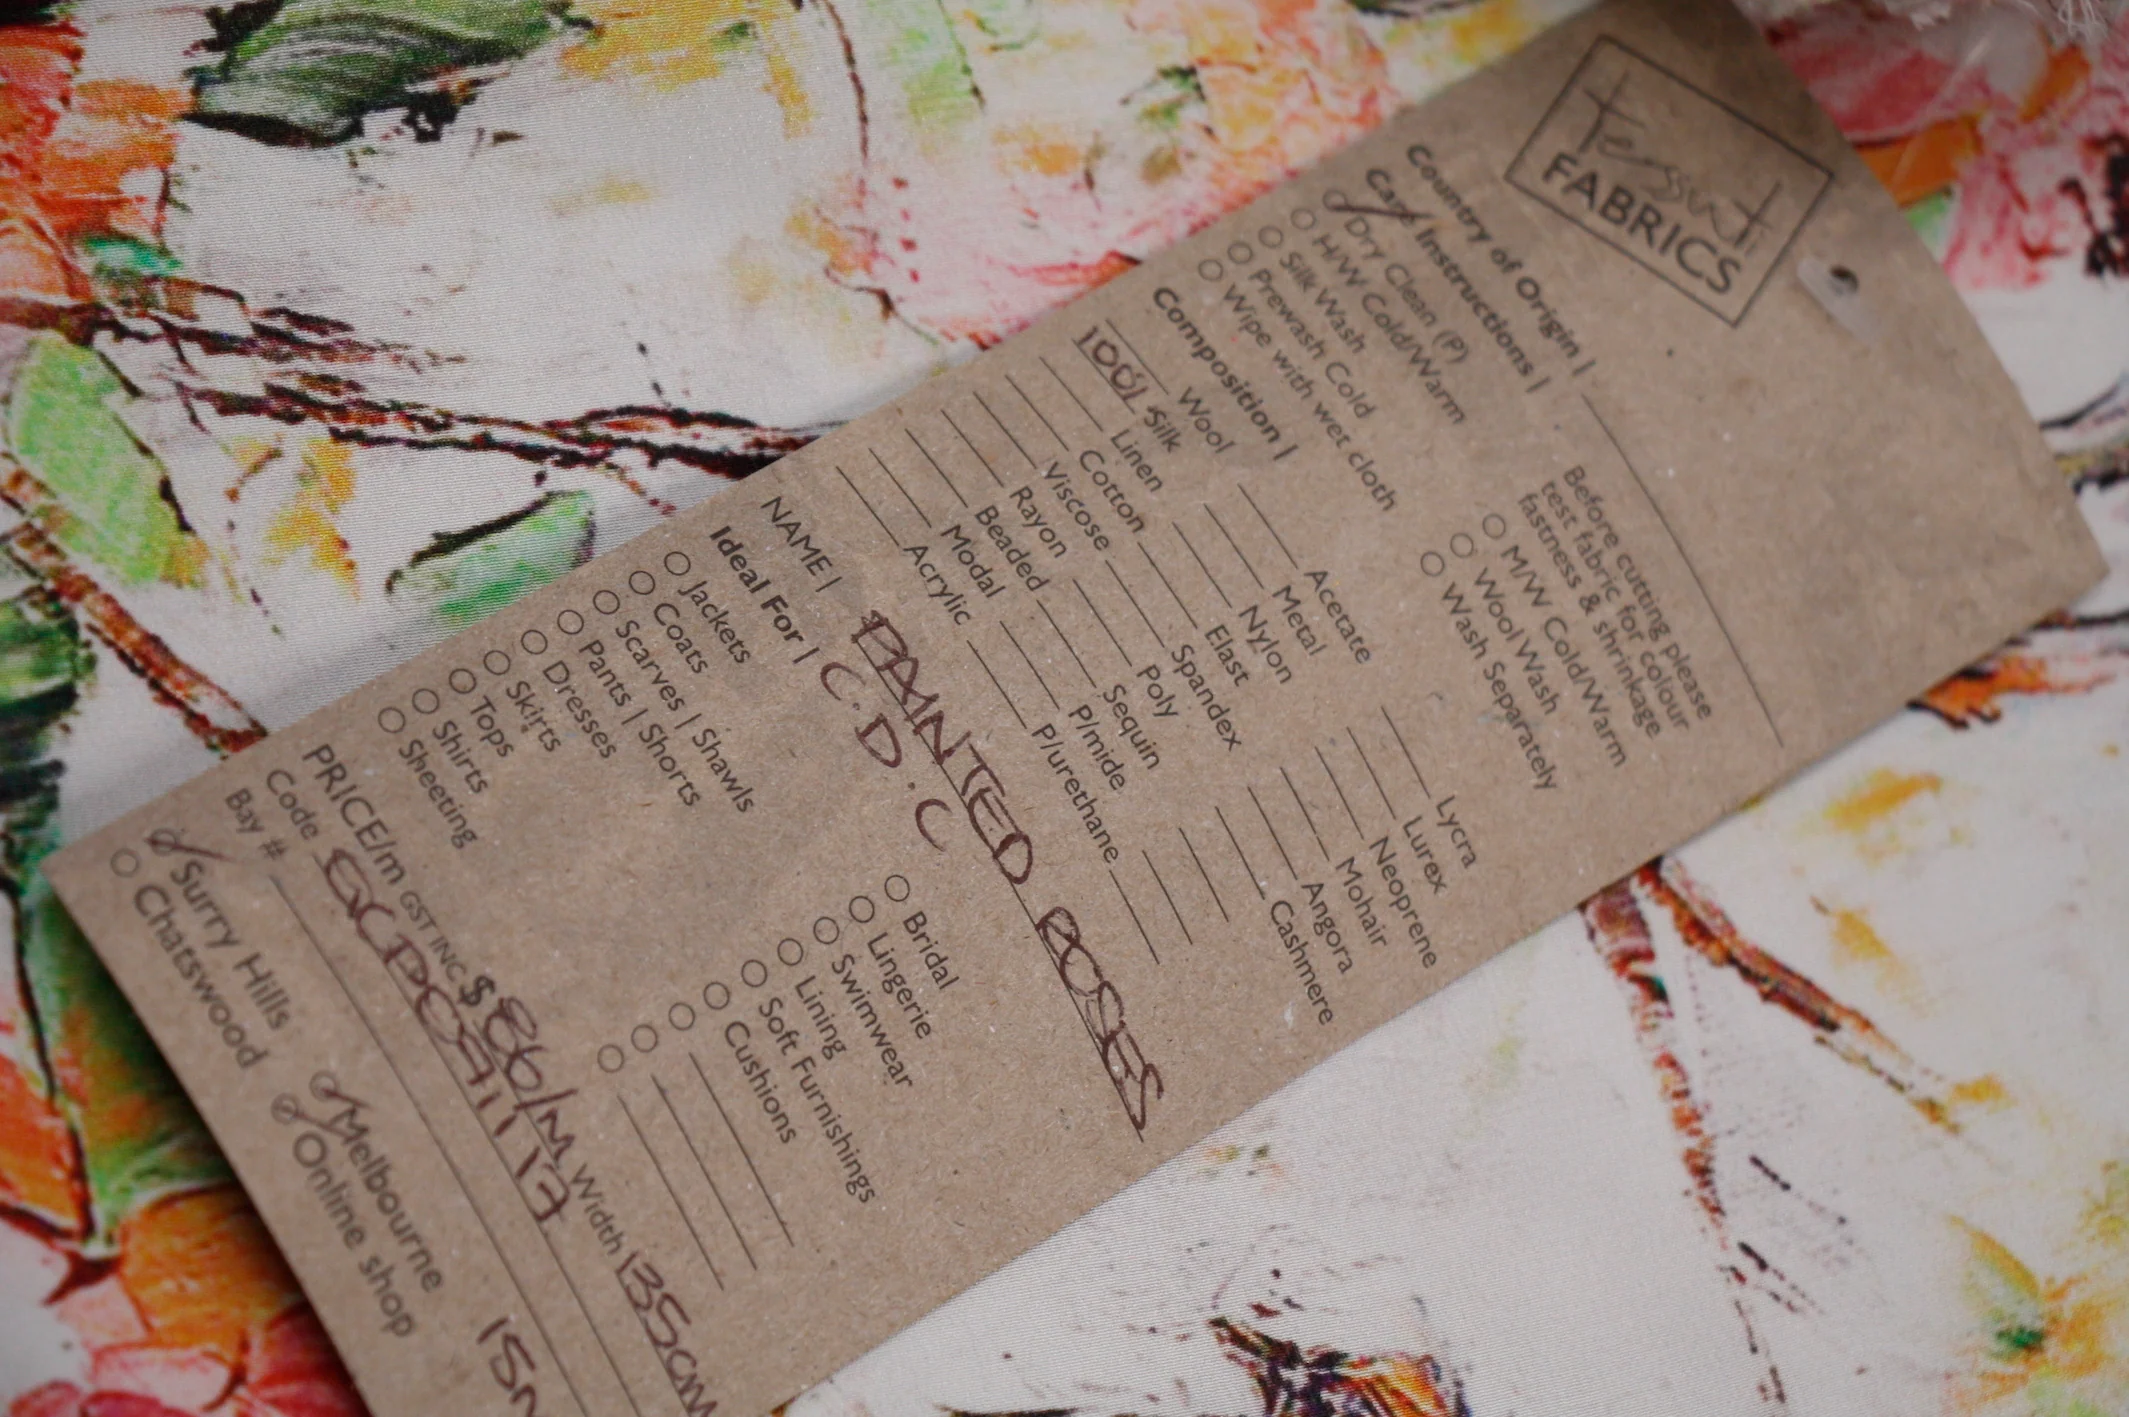 Tessuti
FABRICS
Country of Origin |
Care Instructions |
Dry Clean (P)
H/W Cold/Warm
Silk Wash
Prewash Cold
Wipe with wet cloth
Before cutting please
test fabric for colour
fastness & shrinkage
M/W Cold/Warm
Wool Wash
Wash Separately
Composition |
Wool
100% Silk
Linen
Cotton
Viscose
Rayon
Beaded
Modal
Acrylic
Acetate
Metal
Nylon
Elast
Spandex
Poly
Sequin
P/mide
P/urethane
Lycra
Lurex
Neoprene
Mohair
Angora
Cashmere
NAME | PAINTED ROSES
Ideal For | C.D.C
Jackets
Coats
Scarves | Shawls
Pants | Shorts
Dresses
Skirts
Tops
Shirts
Sheeting
Bridal
Lingerie
Swimwear
Lining
Soft Furnishings
Cushions
PRICE/m GST INC $86/M Width 135cm
Code
Bay #
Surry Hills
Chatswood
Melbourne
Online shop